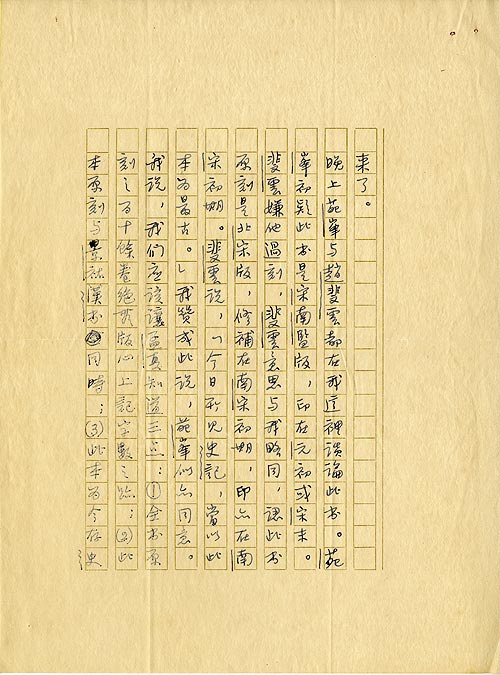 来了。
晚上苑峯与趙斐雲都在我這裡談論此书。苑
峯初疑此书是宋南監版，印在元初或宋末。
斐雲嫌他過刻，斐雲意思与我略同，認此书
原刻是北宋版，修補在南宋初期，印亦在南
宋初期。斐雲說，「今日所見史記，當以此
本為最古。」我贊成此說，苑峯似亦同意。
我說，我们应该讓孟真知道三点：①全书原
刻之百十餘卷絕無版心上記字數之跡；②此
本原刻与景祐漢书同時；③此本為今存史